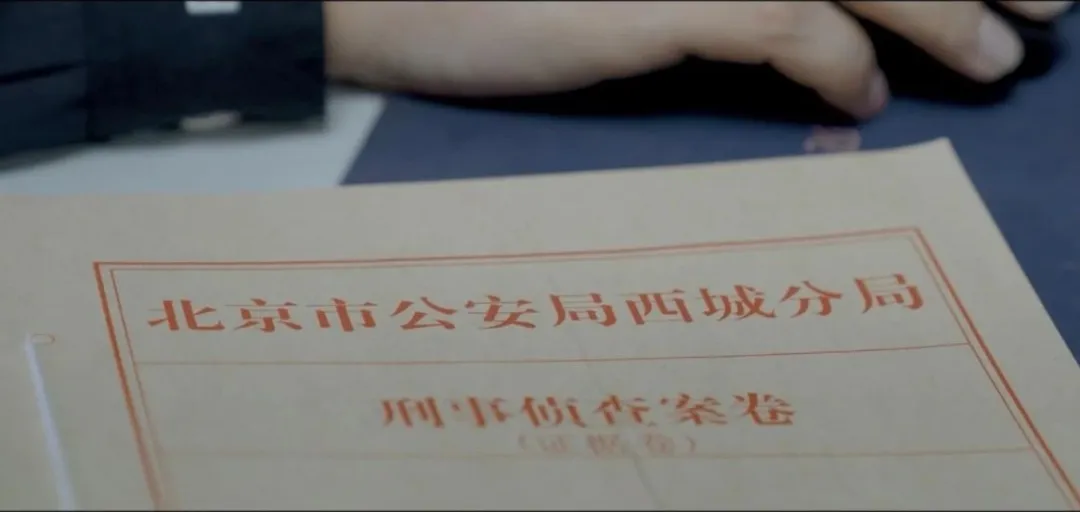 北京市公安局西城分局
刑事侦查案卷
(证据卷)